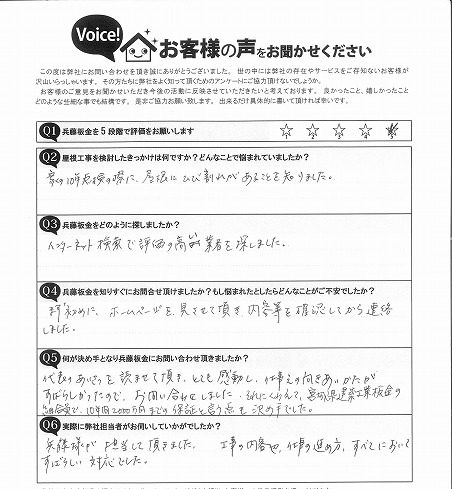 Voice!
お客様の声をお聞かせください
この度は弊社にお問い合わせを頂き誠にありがとうございました。世の中には弊社の存在やサービスをご存知ないお客様が
沢山いらっしゃいます。その方たちに弊社をよく知って頂くためのアンケートにご協力頂けないでしょうか。
お客様のご意見をお聞かせいただき今後の活動に反映させていただきたいと考えております。良かったこと、嬉しかったこと
どのような些細な事でも結構です。是非ご協力お願い致します。出来るだけ具体的に書いて頂ければ幸いです。
Q1 兵藤板金を5段階で評価をお願いします
1 2 3 4
Q2 屋根工事を検討したきっかけは何ですか?どんなことで悩まれていましたか?
家の10年点検の際に、屋根にひび割れがあることを知りました。
Q3 兵藤板金をどのように探しましたか?
インターネット検索で評価の高い業者を探しました。
Q4 兵藤板金を知りすぐにお問合せ頂けましたか?もし悩まれたとしたらどんなことがご不安でしたか?
初めに、ホームページを見させて頂き内容等を確認してから連絡
しました。
Q5 何が決め手となり兵藤板金にお問い合わせ頂きましたか?
代表のあいさつを読ませて頂き、とても感動し、仕事えの向きあいかたが
すばらしかったので、お問い合わせしました。それにくわえて、宮城県建築工業板金の
加盟店で、10年間2000万までの保証と言う点も決め手でした。
Q6 実際に弊社担当者がお伺いしていかがでしたか?
兵藤様が担当して頂きました。工事の内容や、仕事の進め方、すべてにおいて
すばらしい対応でした。